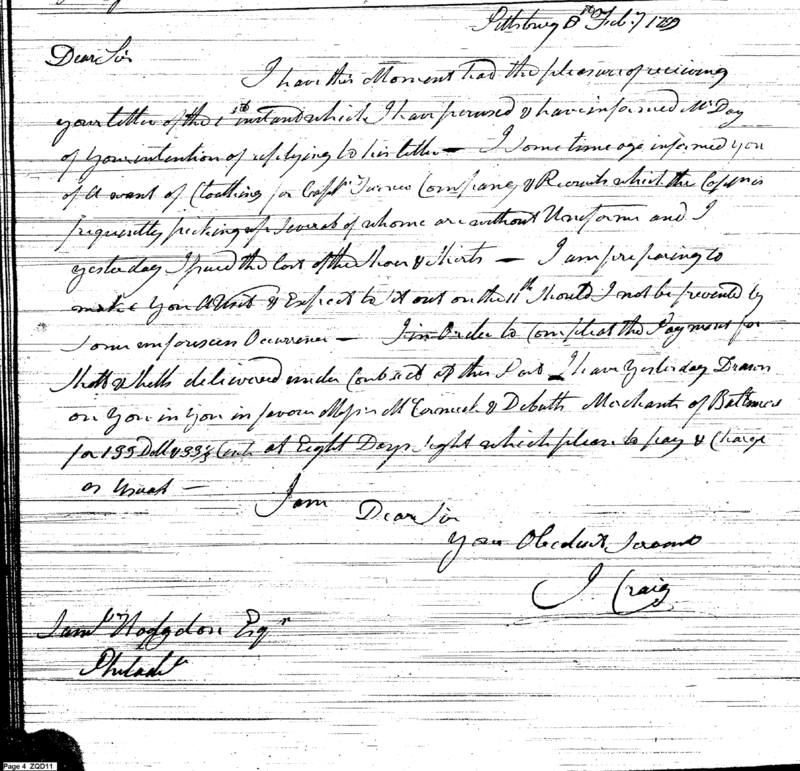 Pittsburg 8th Feby 179
Dear Sir
I have this Moment had the pleasure of reciving
your letter of the 1st instant which I have perused & have informed Mr Day
of your intention of replying to his letter — I some time ago informed you
of a want of Cloathing for Capt Company & Recruits which the Captn is
frequently picking up Several of whome are without Uniforms and I
yesterday I the last of the Shoes & Shirts — I am preparing to
make you a Visit & Expect to Set out on the 11th Should I not be prevented by
some unforiseen Occurrence — I in Order to Compleat the Payment for
Shott & Shells delivered under Contract at this Post I have yesterday Drawn
on you in you in favour Messrs McCormick & Merchants of Baltimore
for 133 Dolls & 33⅓ Cents at Eight Days Sight which please to pay & Charge
as Usual —
I am
Dear Sir
Your Obedient Servant
J Craig
Saml Hodgdon Esqr
Philada
Page 4 ZQD11